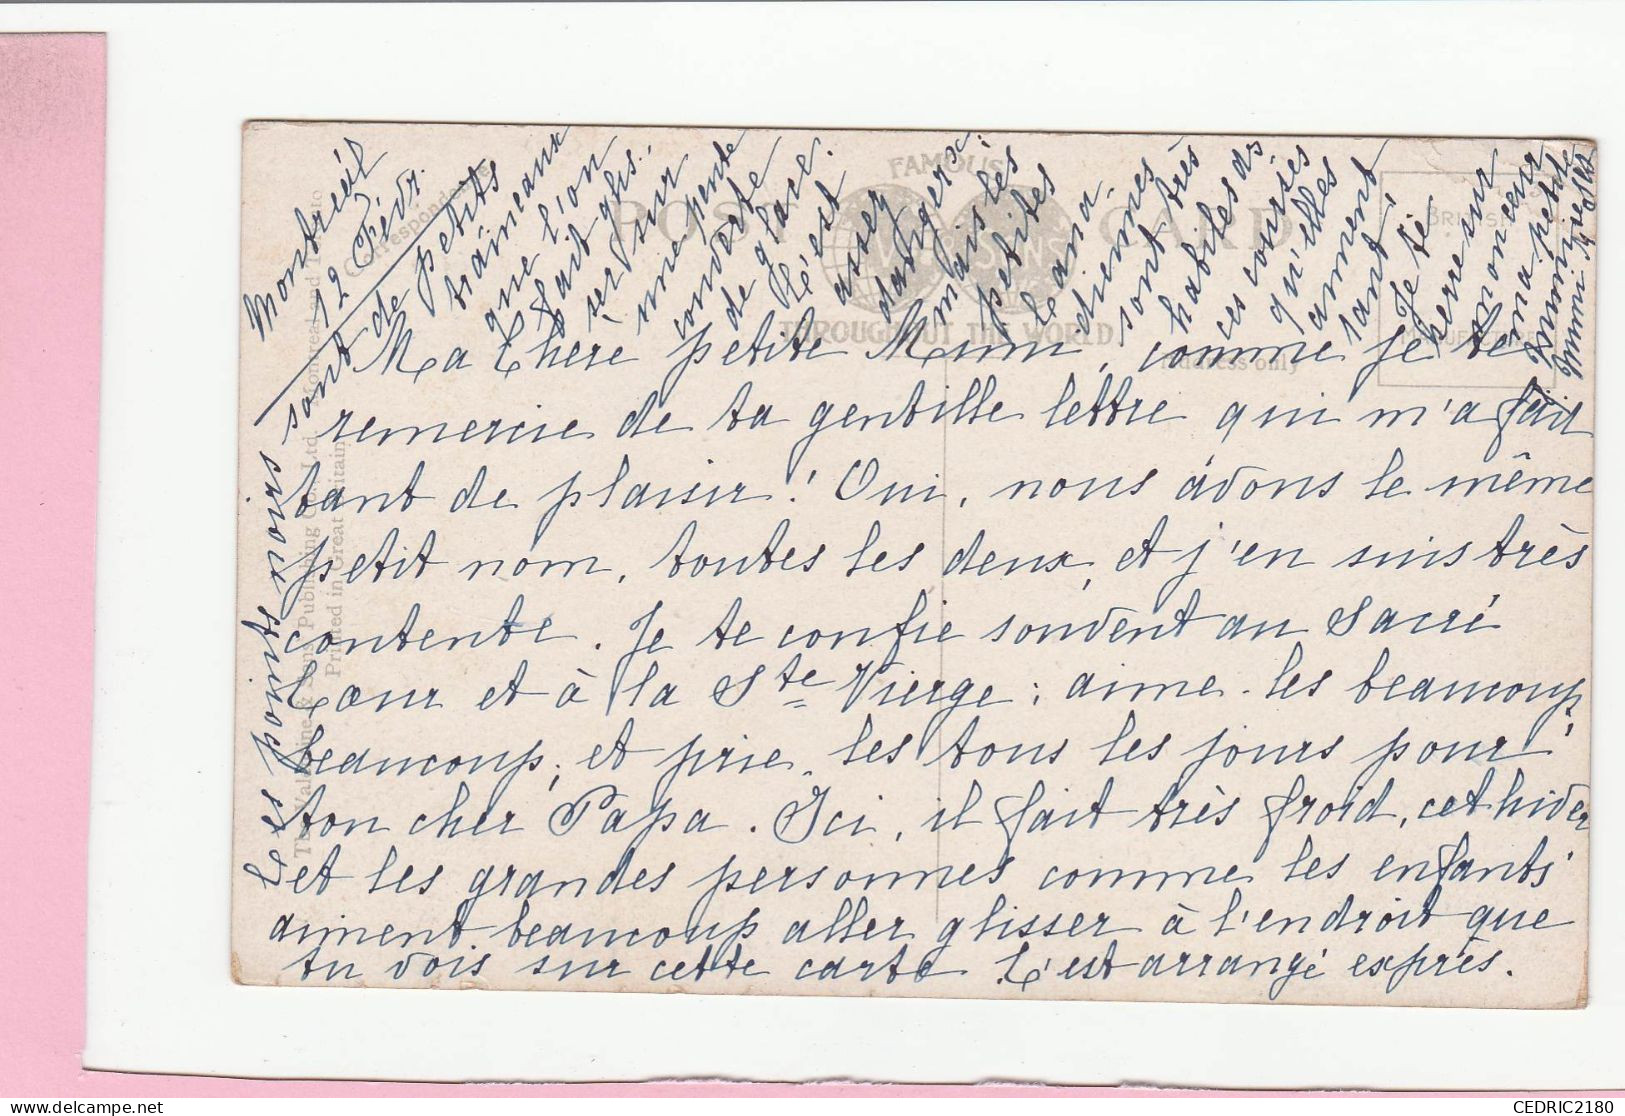 Montréal
12 Févr.
Ma Chère petite Mimi, comme je te
remercie de ta gentille lettre qui m'a fait
tant de plaisir! Oui, nous avons le même
petit nom, toutes les deux, et j'en suis très
contente. Je te confie souvent au Sacré
Cœur et à la Ste Vierge; aime-les beaucoup,
beaucoup, et prie-les tous les jours pour
ton cher Papa. Ici, il fait très froid, cet hiver
et les grandes personnes comme les enfants
aiment beaucoup aller glisser à l'endroit que
tu vois sur cette carte. C'est arrangé exprès.
Les points noirs sont de petits
traineaux
que l'on
fait glis-
ser sur
une pente
couverte
de glace.
C'est
assez
dangereux
mais les
petites
Cana-
diennes
sont très
habiles ds
ces courses
qu'elles
aiment
tant!
Je te
serre sur
mon cœur
ma petite
Mimi
FAMOUS
POST CARD
THROUGHOUT THE WORLD
Address only
Correspondence
The Valentine & Sons Publishing Co. Ltd. Montreal and Toronto
Printed in Great Britain
BRITISH
CEDRIC2180